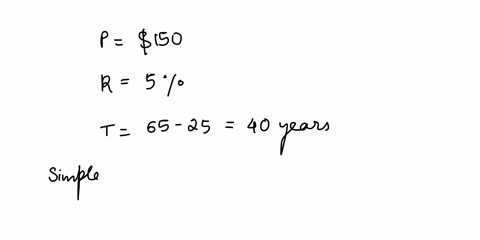 P = $150
R = 5%
T = 65 - 25 = 40 years
Simple